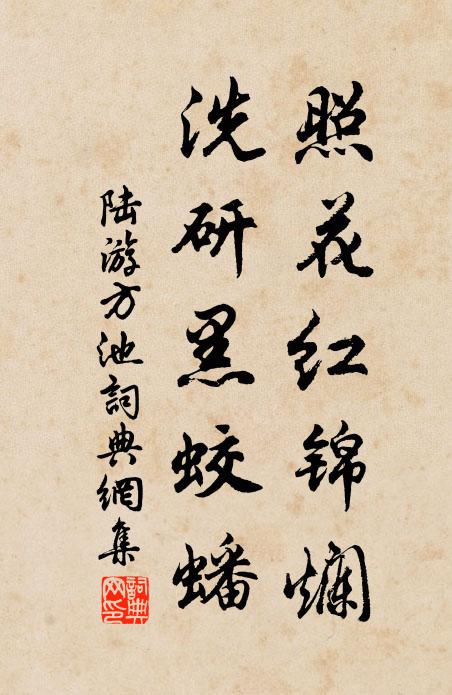 照花红锦斓
洗研黑蛟蟠
陆游方池詞典網集
詞典网印